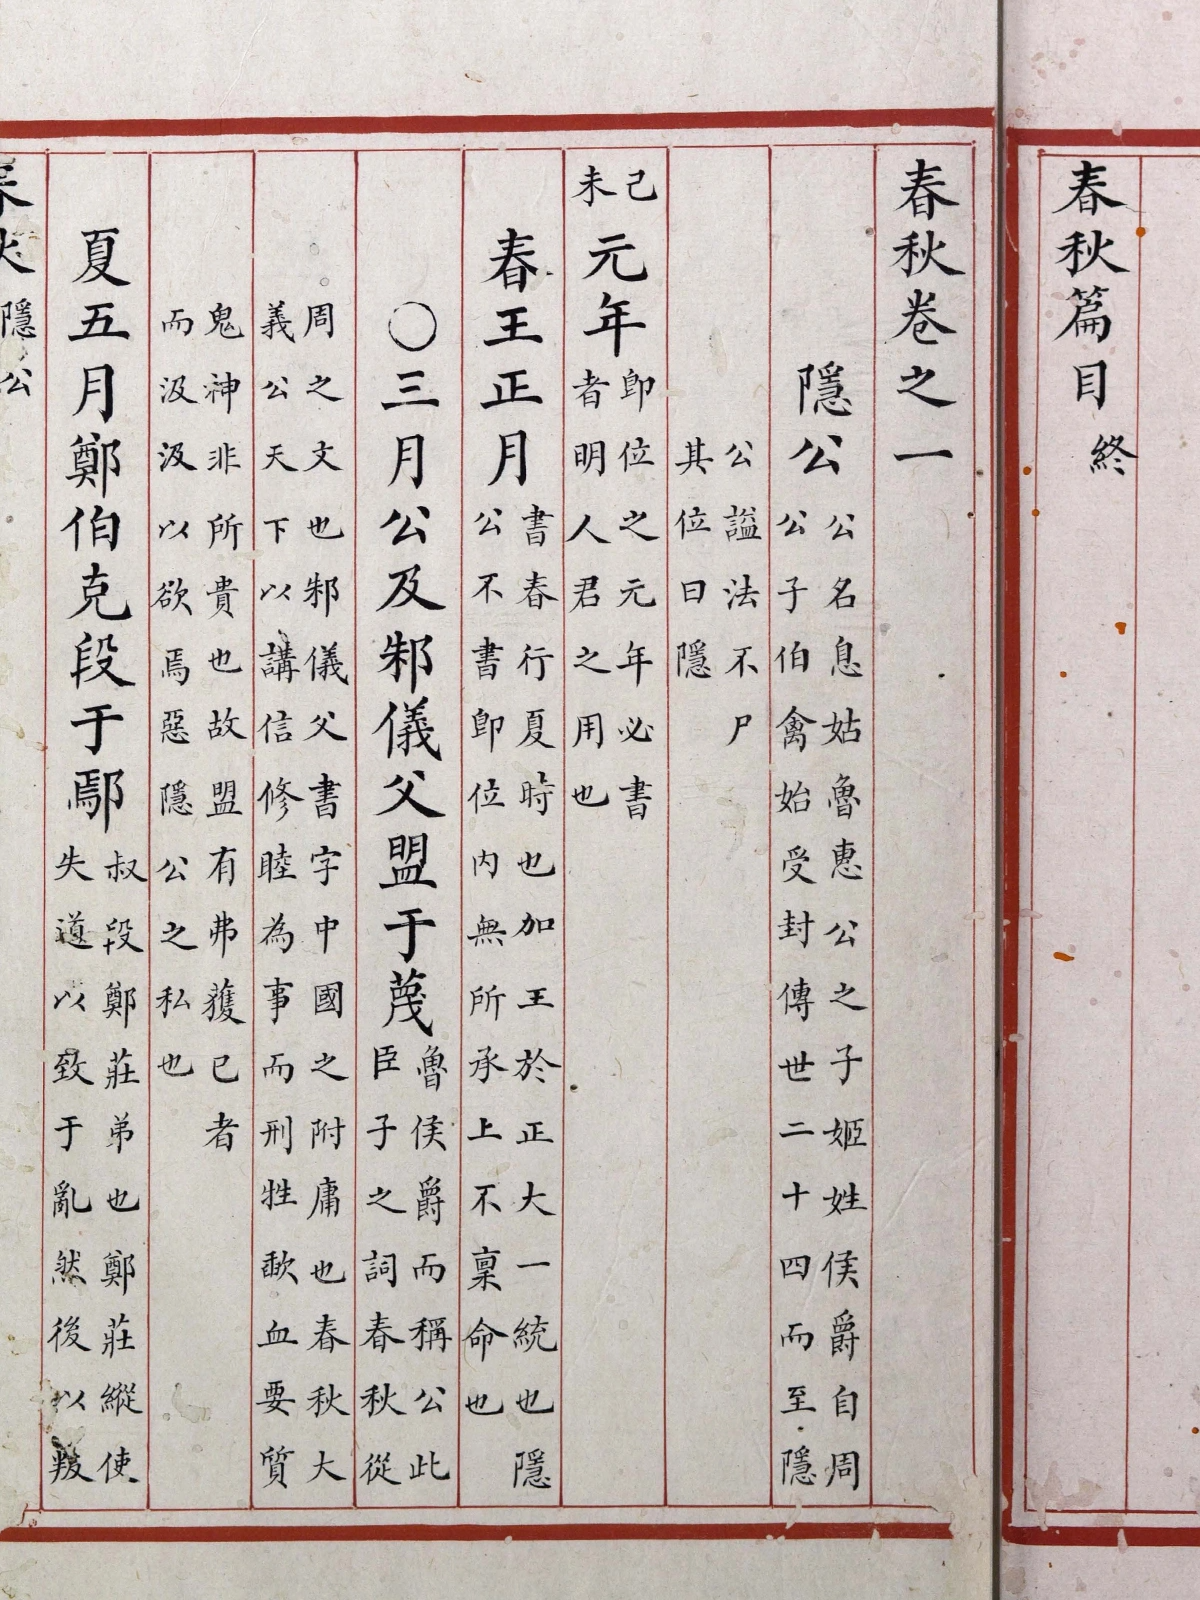 春秋篇目終
春秋卷之一
隱公公名息姑魯惠公之子姬姓侯爵自周
公子伯禽始受封傳世二十四而至隱
公謚法不尸
其位曰隱
己未元年即位之元年必書
者明人君之用也
春王正月書春行夏時也加王於正大一統也隱
公不書即位內無所承上不稟命也
〇三月公及邾儀父盟于蔑魯侯爵而稱公此
臣子之詞春秋從
周之文也邾儀父書字中國之附庸也春秋大
義公天下以講信修睦為事而刑牲歃血要質
鬼神非所貴也故盟有弗獲已者
而汲汲以欲焉惡隱公之私也
夏五月鄭伯克段于鄢叔段鄭莊弟也鄭莊縱使
失道以致于亂然後以叛
春秋隱公